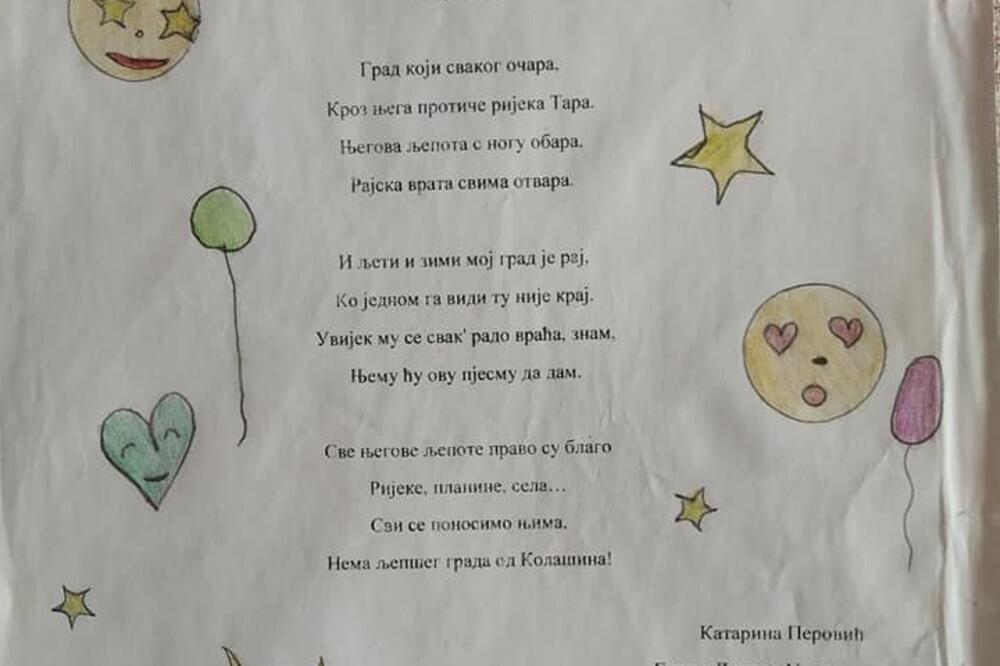 Град који сваког очара,
Кроз њега протиче ријека Тара.
Његова љепота с ногу обара.
Рајска врата свима отвара.
И љети и зими мој град је рај,
Ко једном га види ту није крај.
Увијек му се свак' радо враћа, знам,
Њему ћу ову пјесму да дам.
Све његове љепоте право су благо
Ријеке, планине, села...
Сви се поносимо њима,
Нема љепшег града од Колашина!
Катарина Перовић